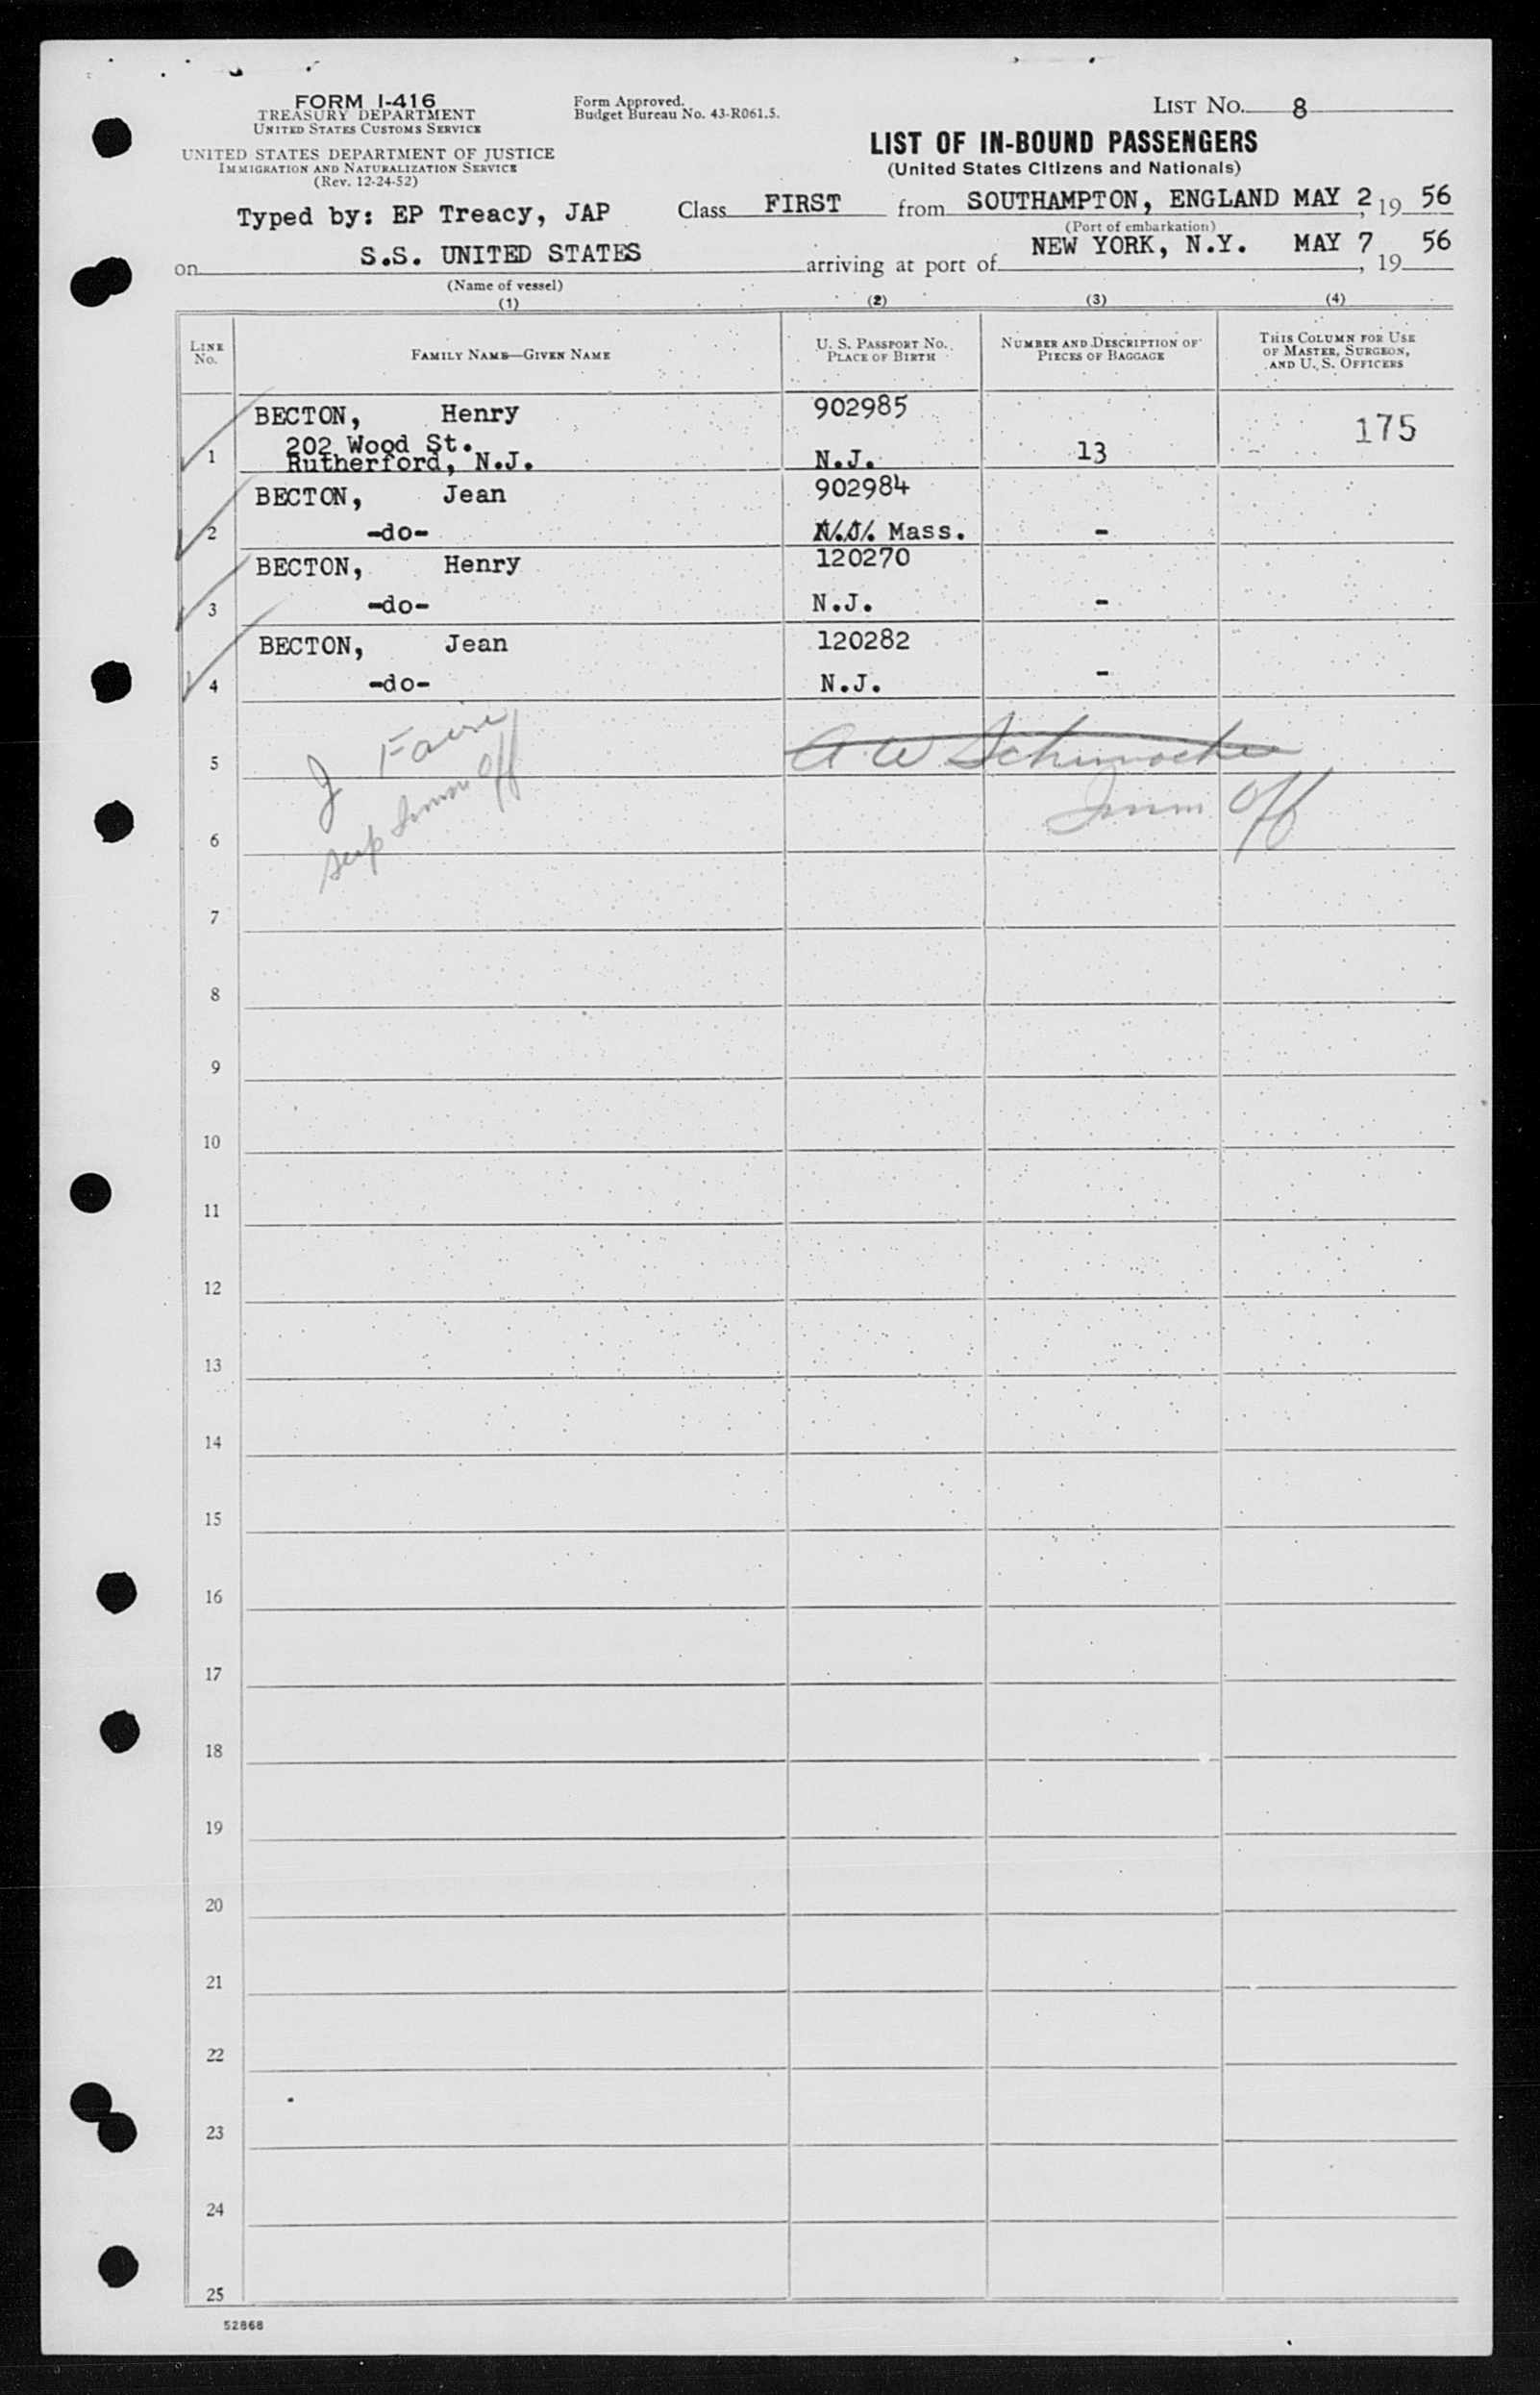 FORM I-416
TREASURY DEPARTMENT
UNITED STATES CUSTOMS SERVICE
UNITED STATES DEPARTMENT OF JUSTICE
IMMIGRATION AND NATURALIZATION SERVICE
(Rev. 12-24-52)
Form Approved.
Budget Bureau No. 43-R061.5.
LIST NO. 8
LIST OF IN-BOUND PASSENGERS
(United States Citizens and Nationals)
Typed by: EP Treacy, JAP Class FIRST from SOUTHAMPTON, ENGLAND MAY 2, 19 56
(Port of embarkation)
on S.S. UNITED STATES arriving at port of NEW YORK, N.Y. MAY 7, 19 56
(Name of vessel)
(1) (2) (3) (4)
LINE No. FAMILY NAME—GIVEN NAME U. S. PASSPORT NO. PLACE OF BIRTH NUMBER AND DESCRIPTION OF PIECES OF BAGGAGE THIS COLUMN FOR USE OF MASTER, SURGEON, AND U. S. OFFICERS
BECTON, Henry 902985
202 Wood St. 175
1 Rutherford, N.J. N.J. 13
BECTON, Jean 902984
2 -do- N.J. Mass. -
BECTON, Henry 120270
3 -do- N.J. -
BECTON, Jean 120282
4 -do- N.J. -
5 J A W
6 Imm Off
7
8
9
10
11
12
13
14
15
16
17
18
19
20
21
22
23
24
25
52868